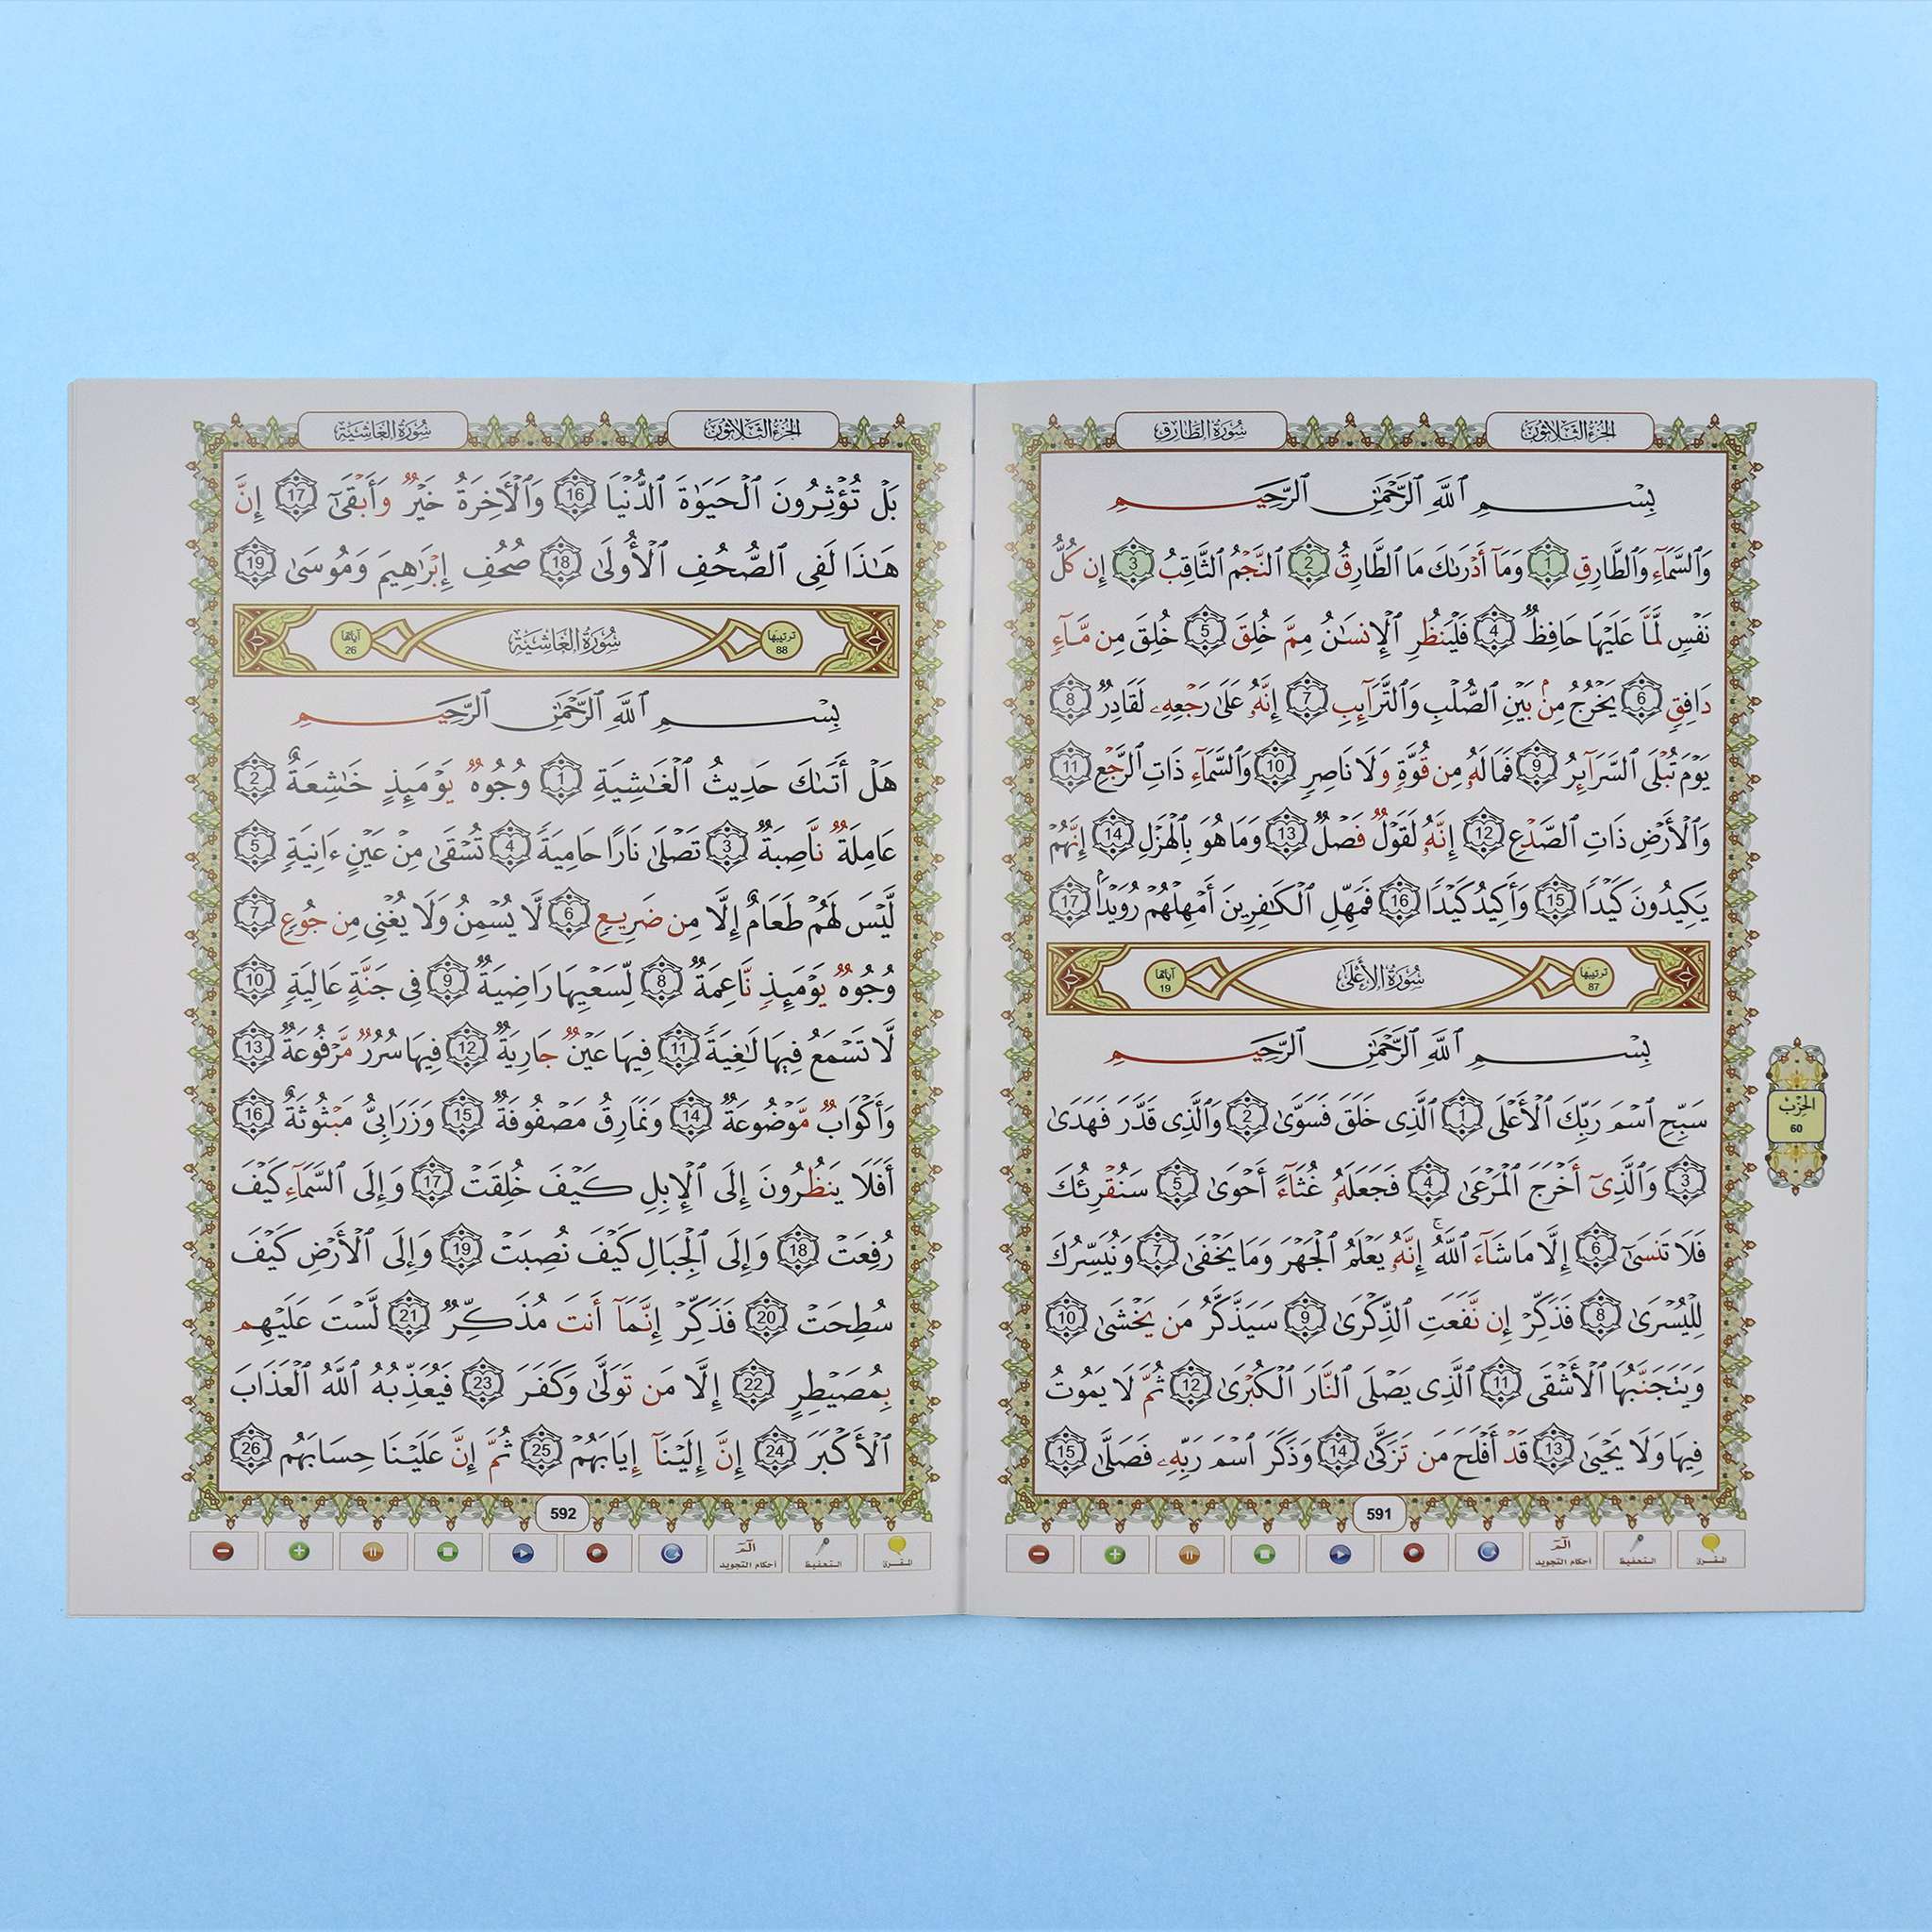 الجزء الثلاثون
سورة الطارق
بِسْمِ ٱللَّهِ ٱلرَّحْمَٰنِ ٱلرَّحِيمِ
وَٱلسَّمَآءِ وَٱلطَّارِقِ 1 وَمَآ أَدْرَىٰكَ مَا ٱلطَّارِقُ 2 ٱلنَّجْمُ ٱلثَّاقِبُ 3 إِن كُلُّ
نَفْسٍ لَّمَّا عَلَيْهَا حَافِظٌ 4 فَلْيَنظُرِ ٱلْإِنسَٰنُ مِمَّ خُلِقَ 5 خُلِقَ مِن مَّآءٍ
دَافِقٍ 6 يَخْرُجُ مِنۢ بَيْنِ ٱلصُّلْبِ وَٱلتَّرَآئِبِ 7 إِنَّهُۥ عَلَىٰ رَجْعِهِۦ لَقَادِرٌ 8
يَوْمَ تُبْلَى ٱلسَّرَآئِرُ 9 فَمَا لَهُۥ مِن قُوَّةٍ وَلَا نَاصِرٍ 10 وَٱلسَّمَآءِ ذَاتِ ٱلرَّجْعِ 11
وَٱلْأَرْضِ ذَاتِ ٱلصَّدْعِ 12 إِنَّهُۥ لَقَوْلٌ فَصْلٌ 13 وَمَا هُوَ بِٱلْهَزْلِ 14 إِنَّهُمْ
يَكِيدُونَ كَيْدًا 15 وَأَكِيدُ كَيْدًا 16 فَمَهِّلِ ٱلْكَٰفِرِينَ أَمْهِلْهُمْ رُوَيْدًۢا 17
ترتيبها 87
سورة الأعلى
آياتها 19
بِسْمِ ٱللَّهِ ٱلرَّحْمَٰنِ ٱلرَّحِيمِ
سَبِّحِ ٱسْمَ رَبِّكَ ٱلْأَعْلَى 1 ٱلَّذِى خَلَقَ فَسَوَّىٰ 2 وَٱلَّذِى قَدَّرَ فَهَدَىٰ
3 وَٱلَّذِىٓ أَخْرَجَ ٱلْمَرْعَىٰ 4 فَجَعَلَهُۥ غُثَآءً أَحْوَىٰ 5 سَنُقْرِئُكَ
فَلَا تَنسَىٰٓ 6 إِلَّا مَا شَآءَ ٱللَّهُ ۚ إِنَّهُۥ يَعْلَمُ ٱلْجَهْرَ وَمَا يَخْفَىٰ 7 وَنُيَسِّرُكَ
لِلْيُسْرَىٰ 8 فَذَكِّرْ إِن نَّفَعَتِ ٱلذِّكْرَىٰ 9 سَيَذَّكَّرُ مَن يَخْشَىٰ 10
وَيَتَجَنَّبُهَا ٱلْأَشْقَى 11 ٱلَّذِى يَصْلَى ٱلنَّارَ ٱلْكُبْرَىٰ 12 ثُمَّ لَا يَمُوتُ
فِيهَا وَلَا يَحْيَىٰ 13 قَدْ أَفْلَحَ مَن تَزَكَّىٰ 14 وَذَكَرَ ٱسْمَ رَبِّهِۦ فَصَلَّىٰ 15
الحزب
60
591
المقرئ
التحفيظ
الٓمٓ أحكام التجويد
الجزء الثلاثون
سورة الغاشية
بَلْ تُؤْثِرُونَ ٱلْحَيَوٰةَ ٱلدُّنْيَا 16 وَٱلْآخِرَةُ خَيْرٌ وَأَبْقَىٰٓ 17 إِنَّ
هَٰذَا لَفِى ٱلصُّحُفِ ٱلْأُولَىٰ 18 صُحُفِ إِبْرَٰهِيمَ وَمُوسَىٰ 19
ترتيبها 88
سورة الغاشية
آياتها 26
بِسْمِ ٱللَّهِ ٱلرَّحْمَٰنِ ٱلرَّحِيمِ
هَلْ أَتَىٰكَ حَدِيثُ ٱلْغَٰشِيَةِ 1 وُجُوهٌ يَوْمَئِذٍ خَٰشِعَةٌ 2
عَامِلَةٌ نَّاصِبَةٌ 3 تَصْلَىٰ نَارًا حَامِيَةً 4 تُسْقَىٰ مِنْ عَيْنٍ ءَانِيَةٍ 5
لَّيْسَ لَهُمْ طَعَامٌ إِلَّا مِن ضَرِيعٍ 6 لَّا يُسْمِنُ وَلَا يُغْنِى مِن جُوعٍ 7
وُجُوهٌ يَوْمَئِذٍ نَّاعِمَةٌ 8 لِّسَعْيِهَا رَاضِيَةٌ 9 فِى جَنَّةٍ عَالِيَةٍ 10
لَّا تَسْمَعُ فِيهَا لَٰغِيَةً 11 فِيهَا عَيْنٌ جَارِيَةٌ 12 فِيهَا سُرُرٌ مَّرْفُوعَةٌ 13
وَأَكْوَابٌ مَّوْضُوعَةٌ 14 وَنَمَارِقُ مَصْفُوفَةٌ 15 وَزَرَابِىُّ مَبْثُوثَةٌ 16
أَفَلَا يَنظُرُونَ إِلَى ٱلْإِبِلِ كَيْفَ خُلِقَتْ 17 وَإِلَى ٱلسَّمَآءِ كَيْفَ
رُفِعَتْ 18 وَإِلَى ٱلْجِبَالِ كَيْفَ نُصِبَتْ 19 وَإِلَى ٱلْأَرْضِ كَيْفَ
سُطِحَتْ 20 فَذَكِّرْ إِنَّمَآ أَنتَ مُذَكِّرٌ 21 لَّسْتَ عَلَيْهِم
بِمُصَيْطِرٍ 22 إِلَّا مَن تَوَلَّىٰ وَكَفَرَ 23 فَيُعَذِّبُهُ ٱللَّهُ ٱلْعَذَابَ
ٱلْأَكْبَرَ 24 إِنَّ إِلَيْنَآ إِيَابَهُمْ 25 ثُمَّ إِنَّ عَلَيْنَا حِسَابَهُم 26
592
المقرئ
التحفيظ
الٓمٓ أحكام التجويد